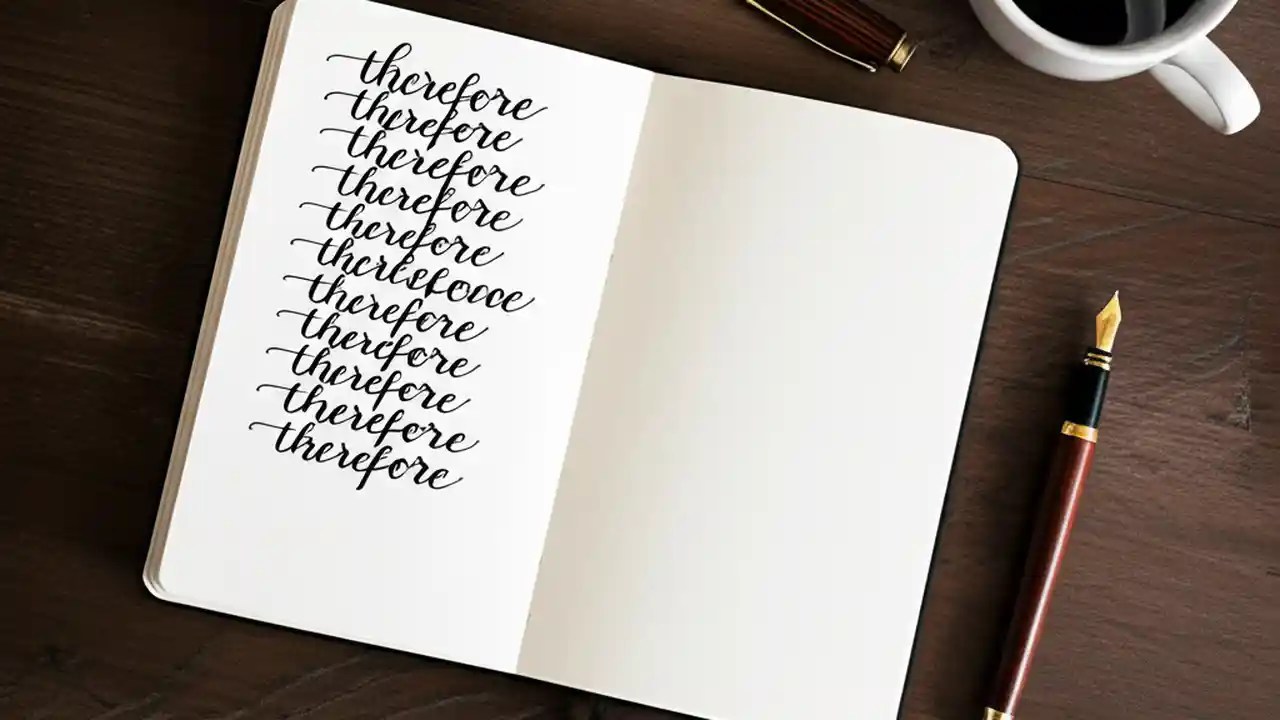 therefore
therefore
therefore
therefore
therefore
therlsfooce
therefore
therefore
therefore
therefore
therefore